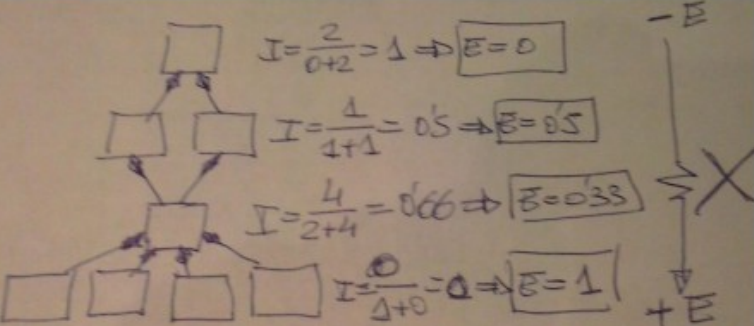 - E
I = 2/(0+2) = 1 ⇒ E = 0
I = 1/(1+1) = 0'5 ⇒ E = 0'5
I = 4/(2+4) = 0'66 ⇒ E = 0'33
I = 0/(1+0) = 0 ⇒ E = 1
+ E